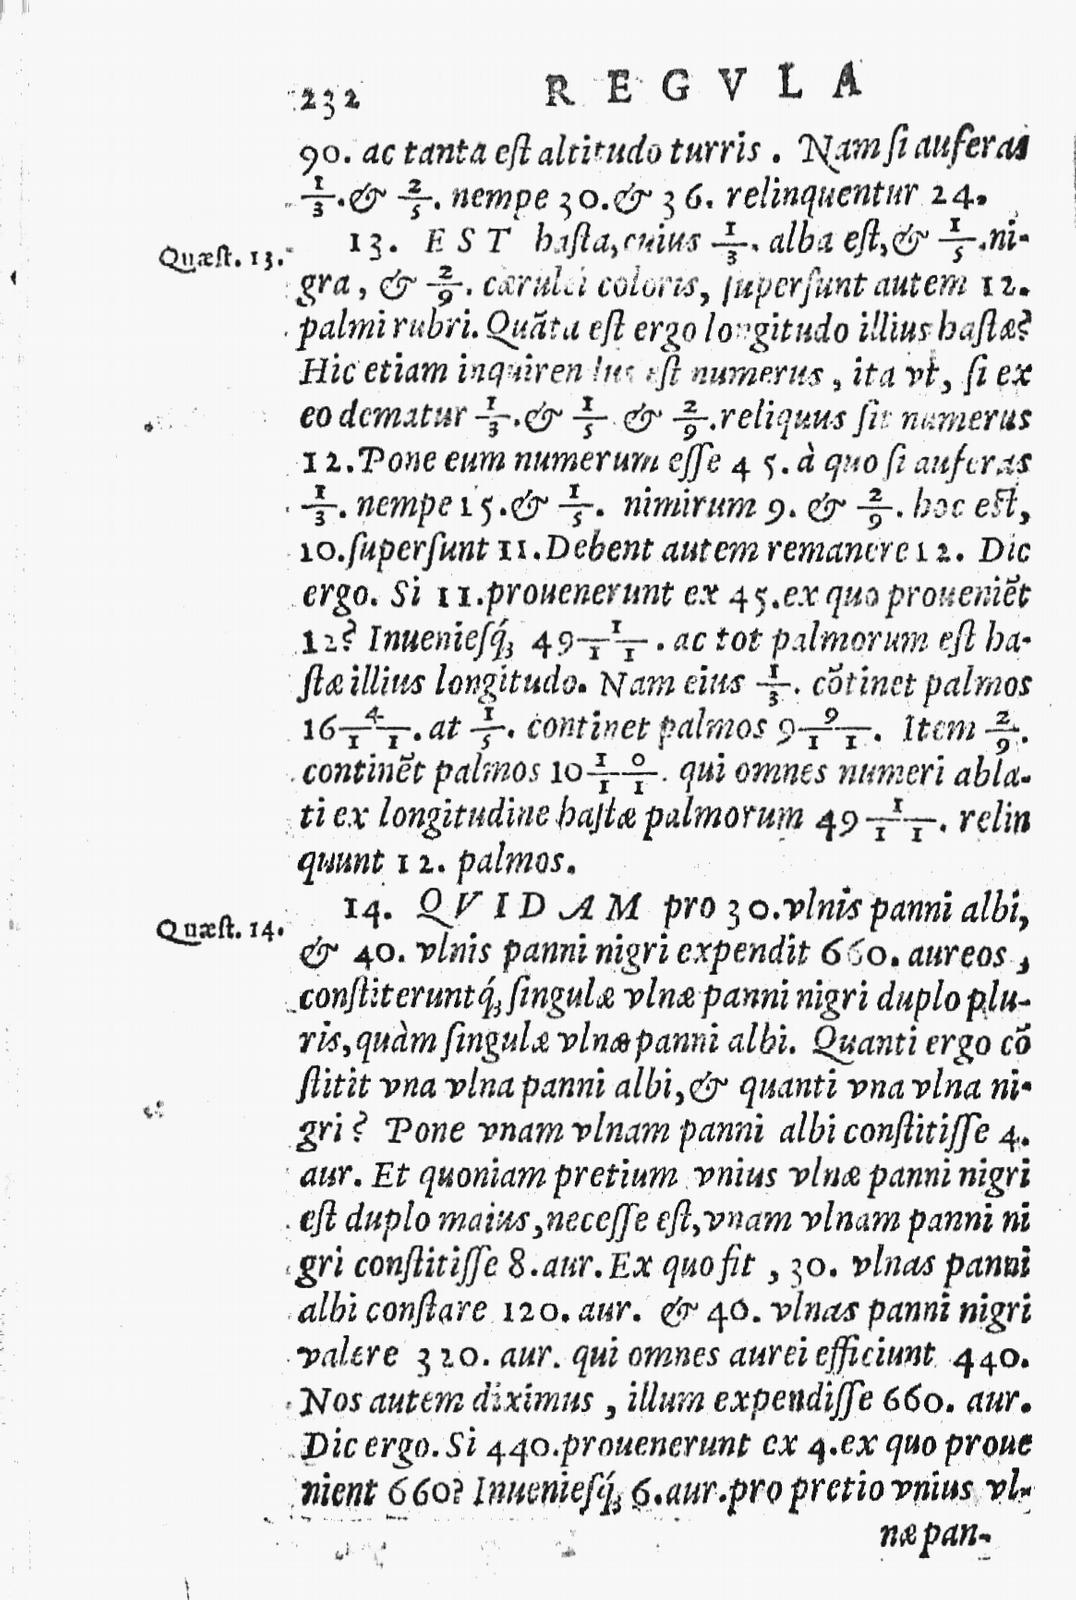 232 REGVLA
90. ac tanta est altitudo turris . Nam si auferas
1/3. & 2/5. nempe 30. & 36. relinquentur 24.
Quæst. 13. 13. EST hasta, cuius 1/3. alba est, & 1/5. ni-
gra, & 2/9. cærulei coloris, supersunt autem 12.
palmi rubri. Quãta est ergo longitudo illius hastæ?
Hic etiam inquirendus est numerus, ita vt, si ex
eo dematur 1/3. & 1/5 & 2/9. reliquus sit numerus
12. Pone eum numerum esse 45. à quo si auferas
1/3. nempe 15. & 1/5. nimirum 9. & 2/9. hoc est,
10. supersunt 11. Debent autem remanere 12. Dic
ergo. Si 11. prouenerunt ex 45. ex quo proueniẽt
12? Inueniesq́; 49 1/11. ac tot palmorum est ha-
stæ illius longitudo. Nam eius 1/3. cõtinet palmos
16 4/11. at 1/5. continet palmos 9 9/11. Item 2/9.
continẽt palmos 10 10/11. qui omnes numeri abla-
ti ex longitudine hastæ palmorum 49 1/11. relin
quunt 12. palmos.
Quæst. 14. 14. QVIDAM pro 30. vlnis panni albi,
& 40. vlnis panni nigri expendit 660. aureos,
constiteruntq́; singulæ vlnæ panni nigri duplo plu-
ris, quàm singulæ vlnæ panni albi. Quanti ergo cõ
stitit vna vlna panni albi, & quanti vna vlna ni-
gri? Pone vnam vlnam panni albi constitisse 4.
aur. Et quoniam pretium vnius vlnæ panni nigri
est duplo maius, necesse est, vnam vlnam panni ni
gri constitisse 8. aur. Ex quo fit, 30. vlnas panni
albi constare 120. aur. & 40. vlnas panni nigri
valere 320. aur. qui omnes aurei efficiunt 440.
Nos autem diximus, illum expendisse 660. aur.
Dic ergo. Si 440. prouenerunt ex 4. ex quo proue
nient 660? Inueniesq́; 6. aur. pro pretio vnius vl-
næ pan-